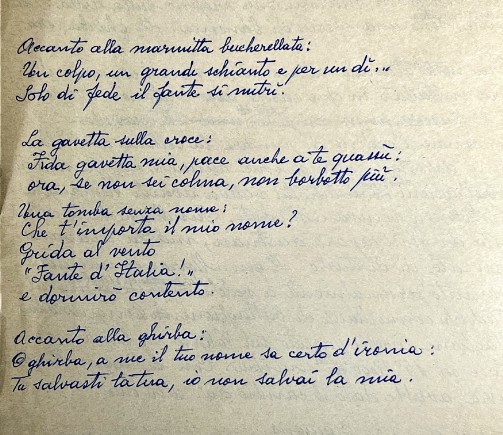 Accanto alla marmitta bucherellata:
Un colpo, un grande schianto e per un dì...
Solo di fede il fante si nutrì.
La gavetta sulla croce:
Fida gavetta mia, pace anche a te quassù:
ora, se non sei colma, non borbotto più.
Una tomba senza nome:
Che t'importa il mio nome?
Grida al vento
"Fante d'Italia!"
e dormirò contento.
Accanto alla ghirba:
O ghirba, a me il tuo nome sa certo d'ironia:
Tu salvasti la tua, io non salvai la mia.